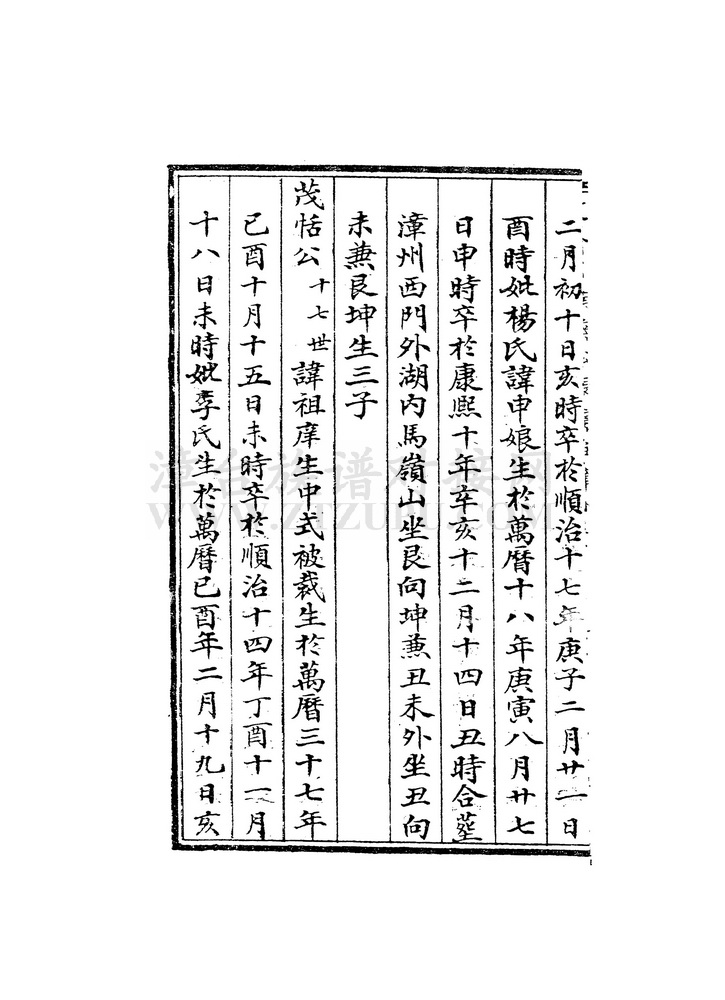 二月初十日亥時卒於順治十七年庚子二月廿二日
酉時妣楊氏諱申娘生於萬曆十八年庚寅八月廿七
日申時卒於康熙十年辛亥十二月十四日丑時合塟
漳州西門外湖内馬嶺山坐艮向坤兼丑未外坐丑向
未兼艮坤生三子
茂恬公 十七世 諱祖庠生中式被裁生於萬曆三十七年
已酉十月十五日未時卒於順治十四年丁酉十一月
十八日未時妣李氏生於萬曆已酉年二月十九日亥
漳台族谱对接网